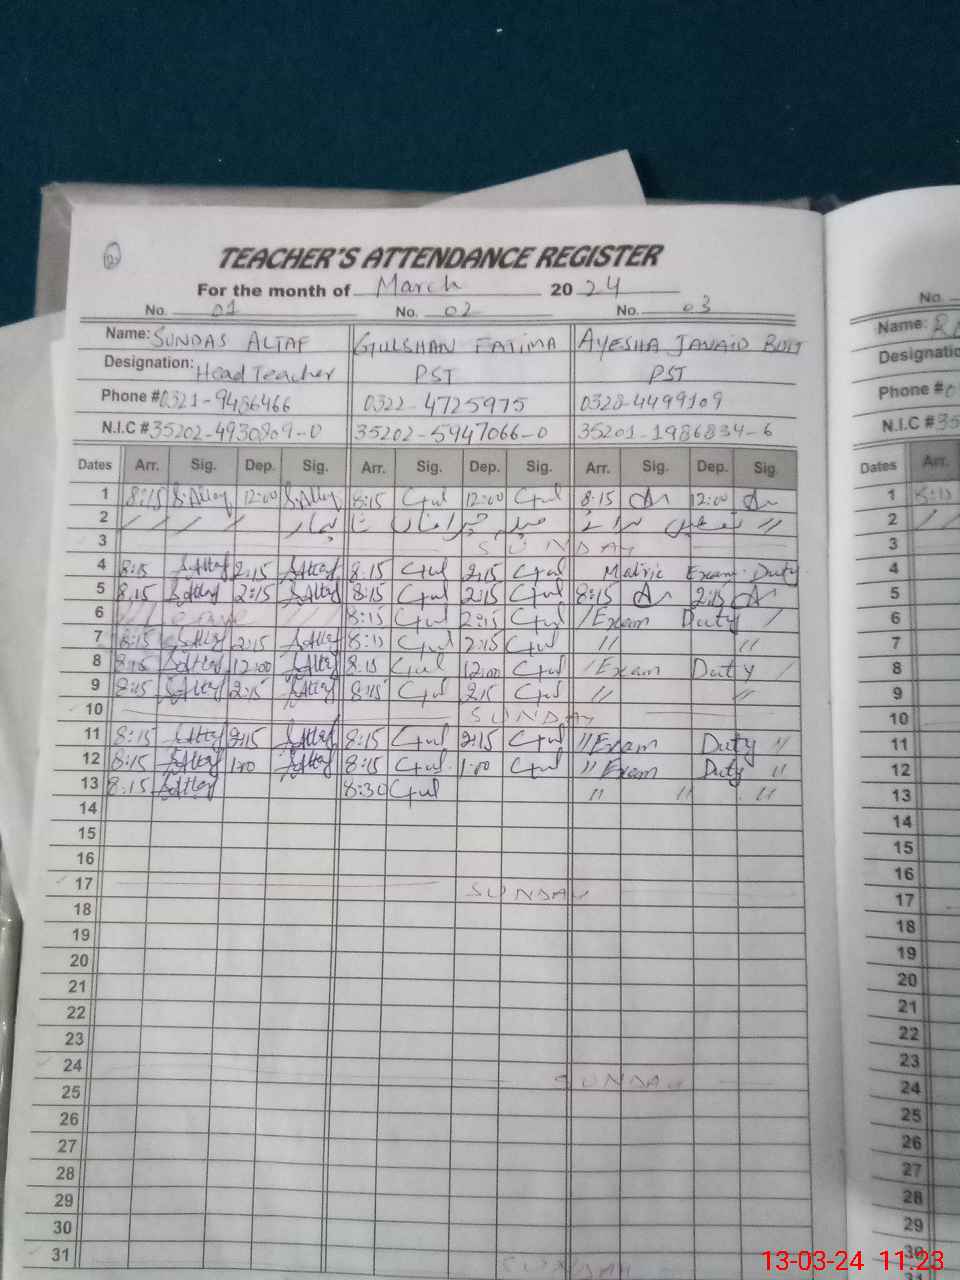 2
TEACHER'S ATTENDANCE REGISTER
For the month of March 2024
No. 01 No. 02 No. 03
Name: SUNDAS ALTAF GULSHAN FATIMA AYESHA JAVAID BUTT
Designation: Head Teacher PST PST
Phone # 0321-9486466 0322-4725975 0328-4499109
N.I.C # 35202-4930809-0 35202-5947066-0 35201-1986834-6
Dates Arr. Sig. Dep. Sig. Arr. Sig. Dep. Sig. Arr. Sig. Dep. Sig
1 8:15 S.Altaf 12:00 S.Altaf 8:15 Gul 12:00 Gul 8:15 12:00
2 // تعطیل
3 SUNDAY
4 8:15 S.Altaf 2:15 S.Altaf 8:15 Gul 2:15 Gul Matric Exam Duty
5 8:15 S.Altaf 2:15 S.Altaf 8:15 Gul 2:15 Gul 8:15 2:15
6 Leave 8:15 Gul 2:15 Gul / Exam Duty /
7 8:15 S.Altaf 2:15 S.Altaf 8:15 Gul 2:15 Gul // //
8 8:15 S.Altaf 12:00 S.Altaf 8:15 Gul 12:00 Gul / Exam Duty /
9 8:15 S.Altaf 2:15 S.Altaf 8:15 Gul 2:15 Gul // //
10 SUNDAY
11 8:15 S.Altaf 2:15 S.Altaf 8:15 Gul 2:15 Gul // Exam Duty //
12 8:15 S.Altaf 1:00 S.Altaf 8:15 Gul 1:00 Gul // Exam Duty //
13 8:15 S.Altaf 8:30 Gul // // //
14
15
16
17 SUNDAY
18
19
20
21
22
23
24 SUNDAY
25
26
27
28
29
30
31 SUNDAY
No.
Name:
Designatio
Phone #0
N.I.C #35
Dates Arr.
1 8:15
2 //
3
4
5
6
7
8
9
10
11
12
13
14
15
16
17
18
19
20
21
22
23
24
25
26
27
28
29
30
31
13-03-24 11:23